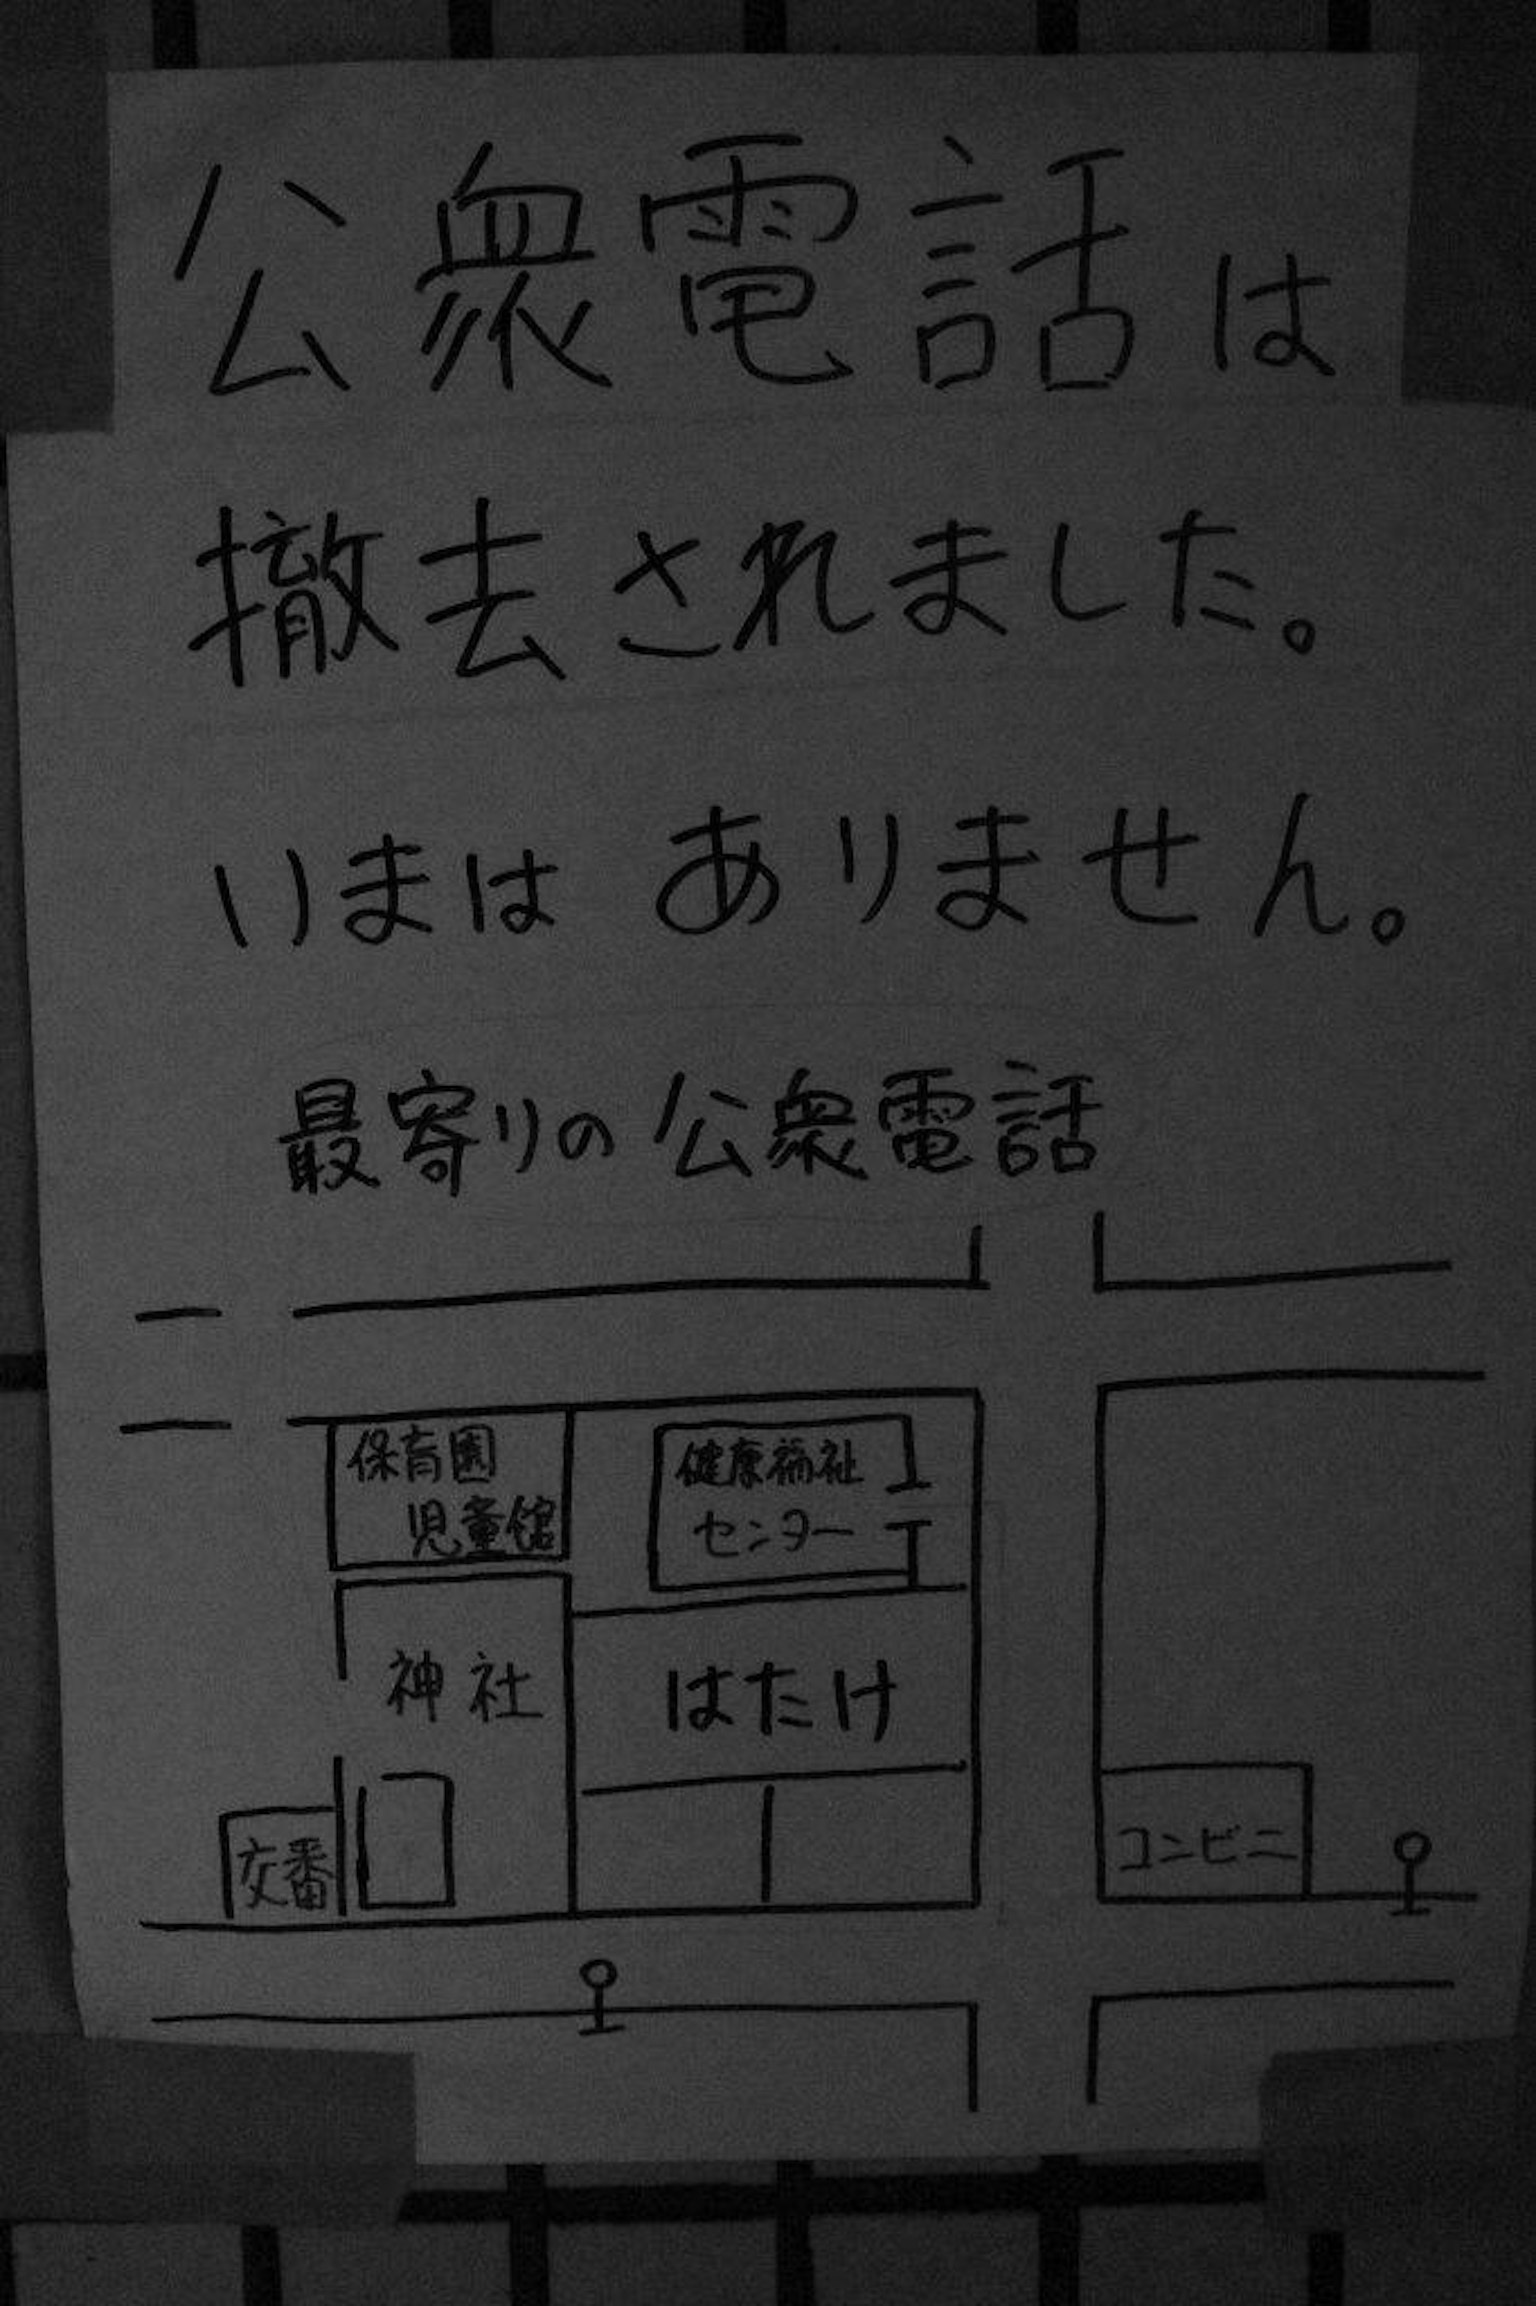 公衆電話は
撤去されました。
いまは ありません。
最寄りの 公衆電話
保育園
児童館
健康福祉
センター
神社
はたけ
交番
コンビニ